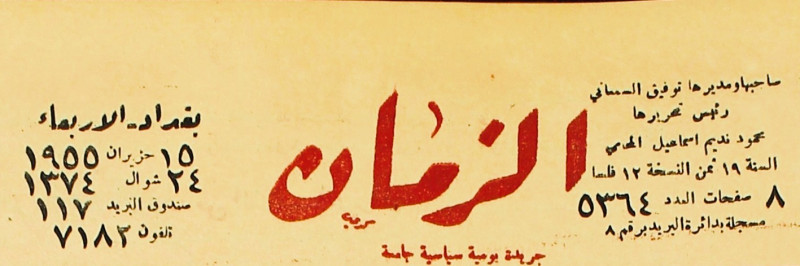 صاحبها ومديرها توفيق السمعاني
رئيس تحريرها
محمود نديم اسماعيل المحامي
السنة ١٩ ثمن النسخة ١٢ فلسا
٨ صفحات العدد ٥٣٦٤
مسجلة بدائرة البريد برقم ٨
الزمان
جريدة يومية سياسية جامعة
بغداد - الاربعاء
١٥ حزيران ١٩٥٥
٢٤ شوال ١٣٧٤
صندوق البريد ١١٧
تلفون ٧١٨٣